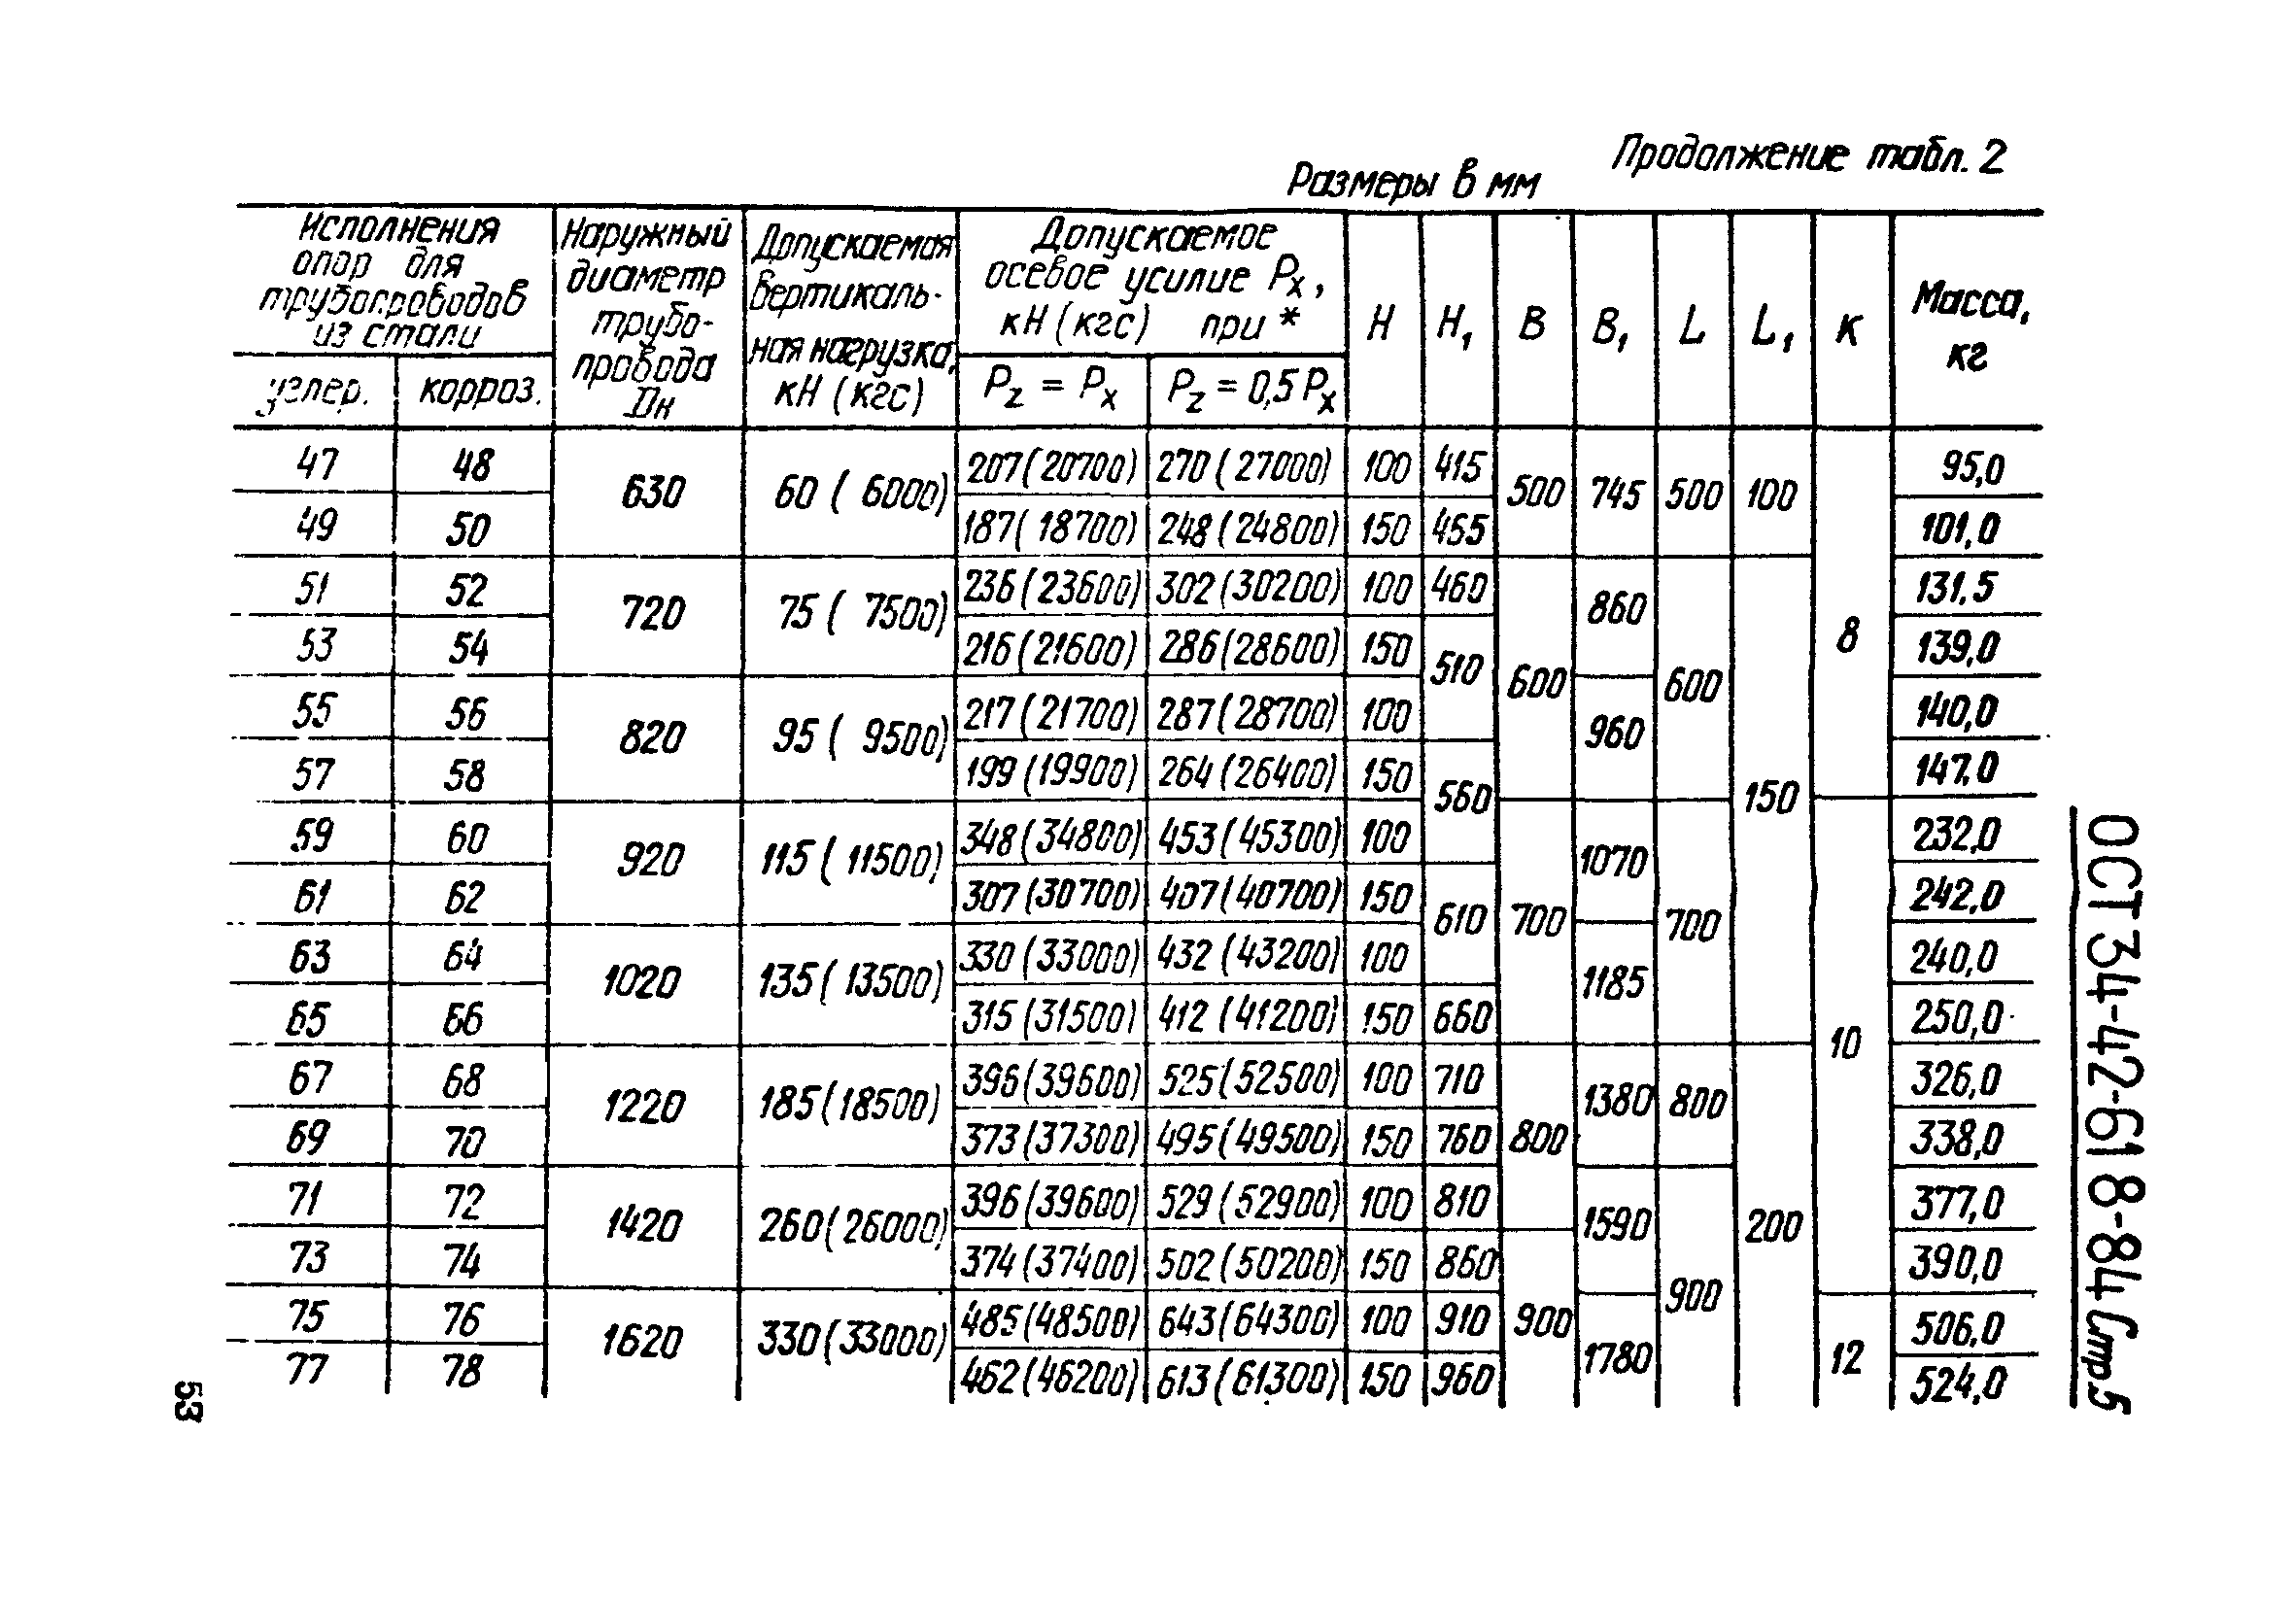 Продолжение табл. 2
Размеры в мм
Исполнения опор для трубопроводов из стали
углер. корроз.
Наружный диаметр трубо-провода Dн
Допускаемая вертикаль-ная нагрузка, кН (кгс)
Допускаемое осевое усилие Px, кН (кгс) при *
Pz = Px Pz = 0,5 Px
H H1 B B1 L L1 K Масса, кг
47 48 630 60 (6000) 207 (20700) 270 (27000) 100 415 500 745 500 100 8 95,0
49 50 187 (18700) 248 (24800) 150 465 101,0
51 52 720 75 (7500) 236 (23600) 302 (30200) 100 460 600 860 600 150 131,5
53 54 216 (21600) 286 (28600) 150 510 139,0
55 56 820 95 (9500) 217 (21700) 287 (28700) 100 960 140,0
57 58 199 (19900) 264 (26400) 150 560 147,0
59 60 920 115 (11500) 348 (34800) 453 (45300) 100 700 1070 700 10 232,0
61 62 307 (30700) 407 (40700) 150 610 242,0
63 64 1020 135 (13500) 330 (33000) 432 (43200) 100 1185 240,0
65 66 315 (31500) 412 (41200) 150 660 250,0
67 68 1220 185 (18500) 396 (39600) 525 (52500) 100 710 800 1380 800 200 326,0
69 70 373 (37300) 495 (49500) 150 760 338,0
71 72 1420 260 (26000) 396 (39600) 529 (52900) 100 810 1590 900 377,0
73 74 374 (37400) 502 (50200) 150 860 900 390,0
75 76 1620 330 (33000) 485 (48500) 643 (64300) 100 910 1780 12 506,0
77 78 462 (46200) 613 (61300) 150 960 524,0
ОСТ 34-42-618-84 Стр. 5
53